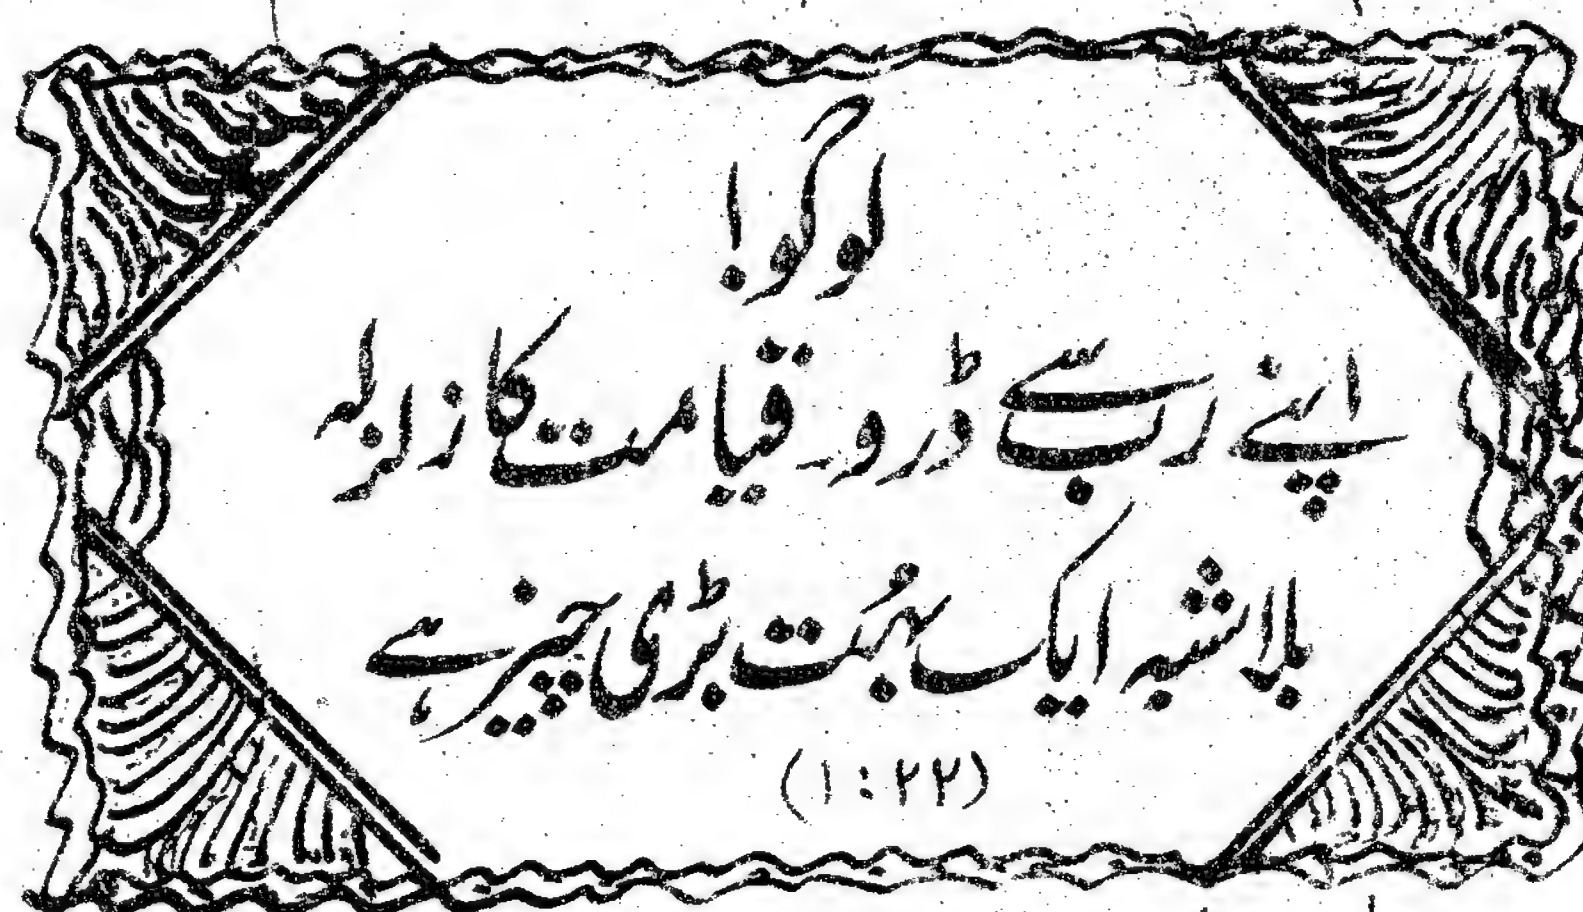 لوگو!
اپنے رب سے ڈرو۔ قیامت کا زلزلہ
بلاشبہ ایک بہُت بڑی چیز ہے
(۱ : ۲۲)